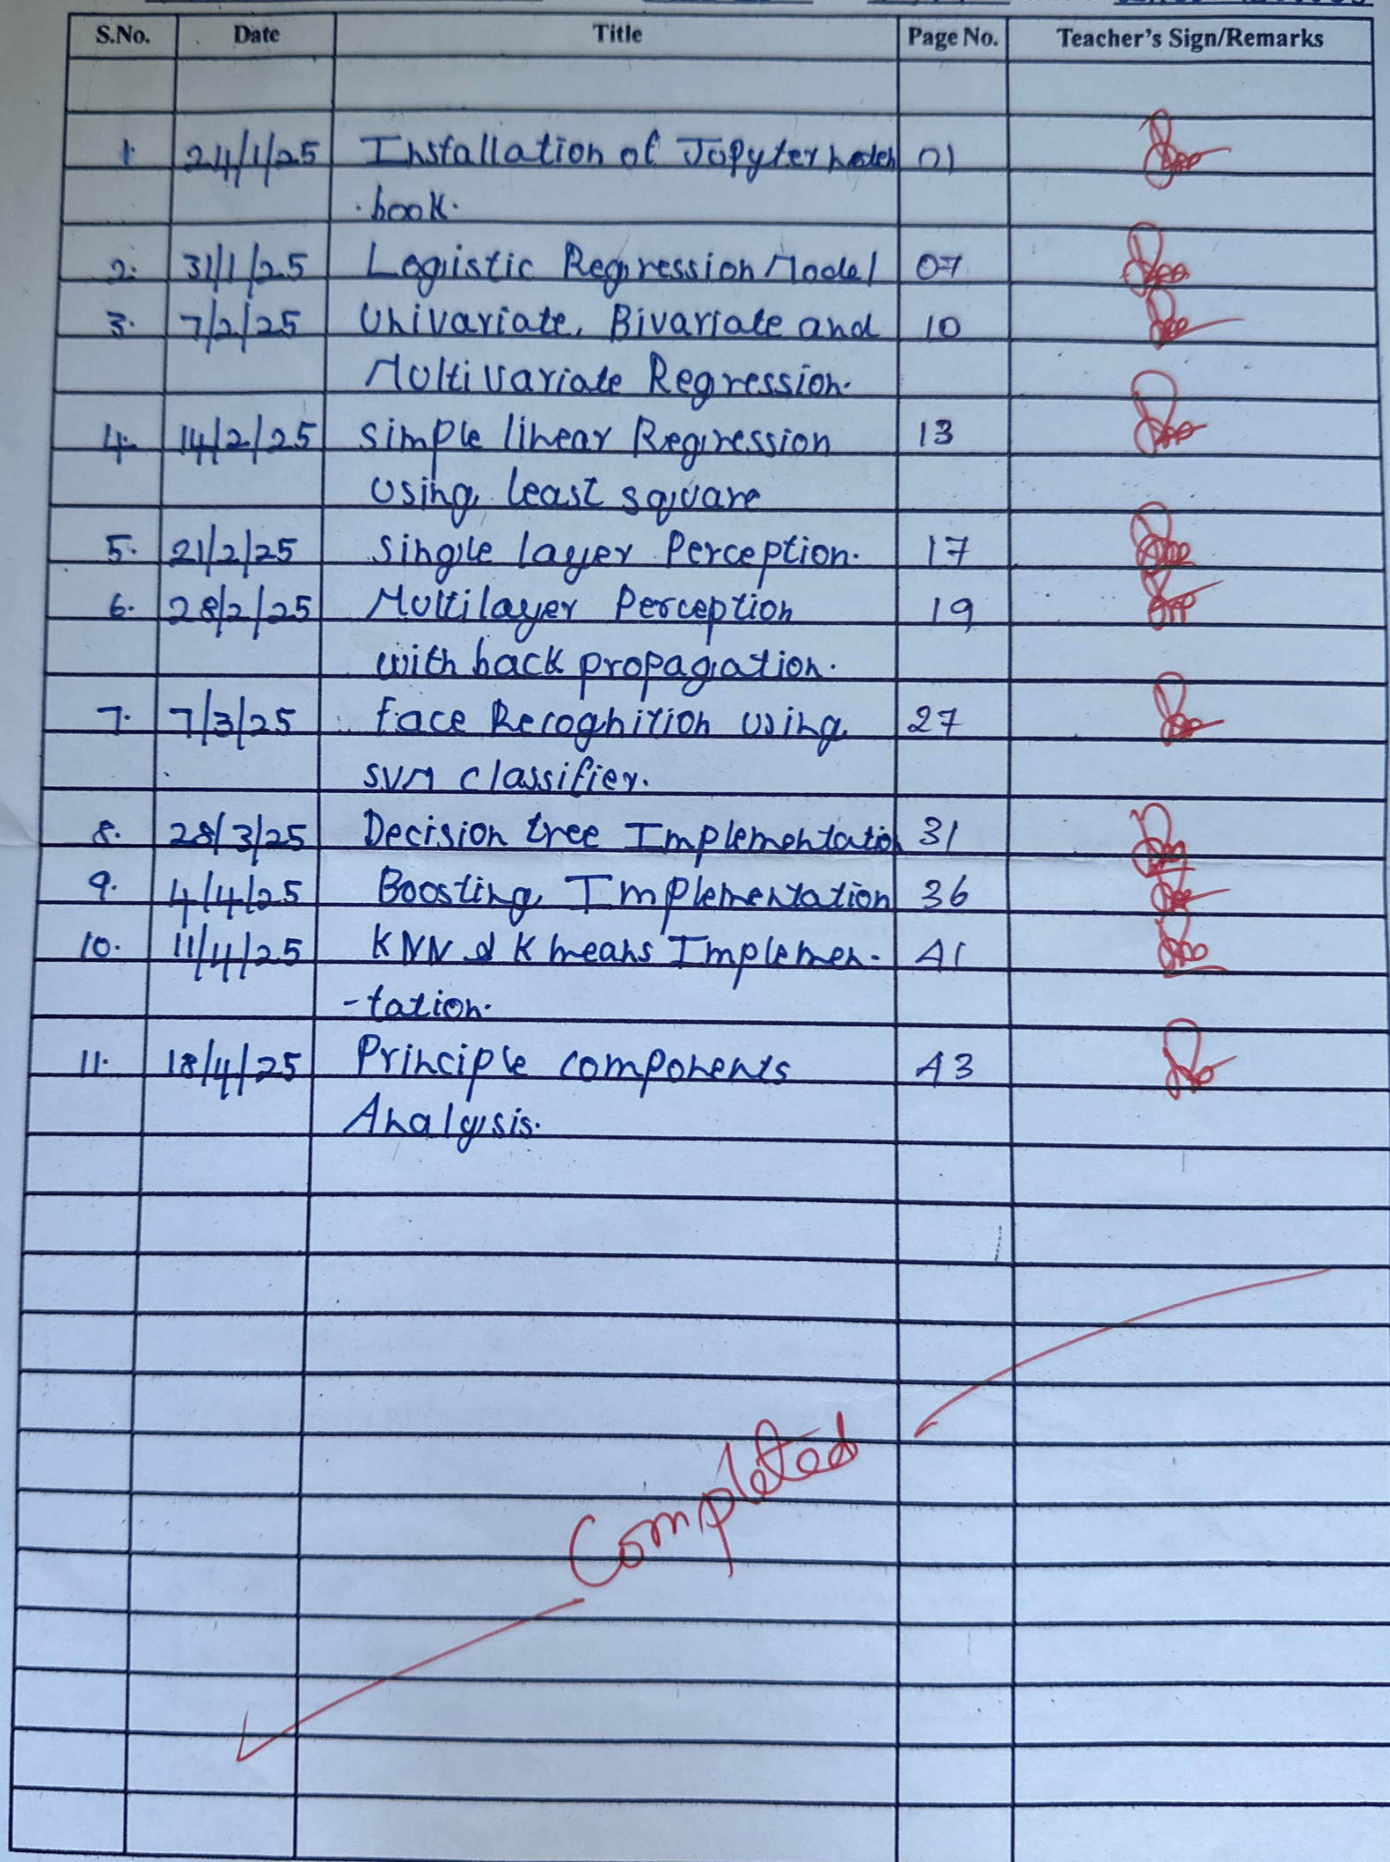 S.No. Date Title Page No. Teacher's Sign/Remarks
1. 24/1/25 Installation of Jupyter 01
book.
2. 31/1/25 Logistic Regression Model 07
3. 7/2/25 Univariate, Bivariate and 10
Multivariate Regression.
4. 14/2/25 Simple linear Regression 13
using least square
5. 21/2/25 Single layer Perception. 17
6. 28/2/25 Multilayer Perception 19
with back propagation.
7. 7/3/25 Face Recognition using 27
SVM classifier.
8. 28/3/25 Decision tree Implementation 31
9. 4/4/25 Boosting Implementation 36
10. 11/4/25 KNN & K means Implemen- 41
-tation.
11. 18/4/25 Principle components 43
Analysis.
Completed